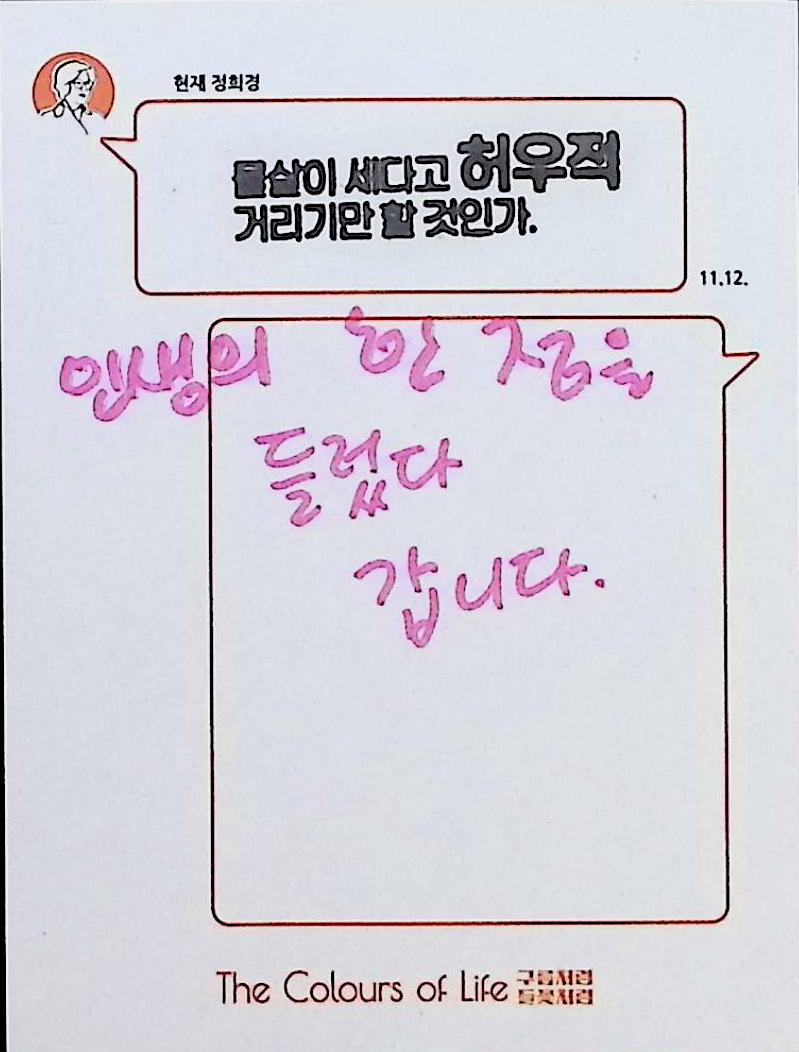 현재 정희경
물살이 세다고 허우적
거리기만 할 것인가.
11.12.
인생의 한 점을
들렀다
갑니다.
The Colours of Life 구름처럼
들꽃처럼